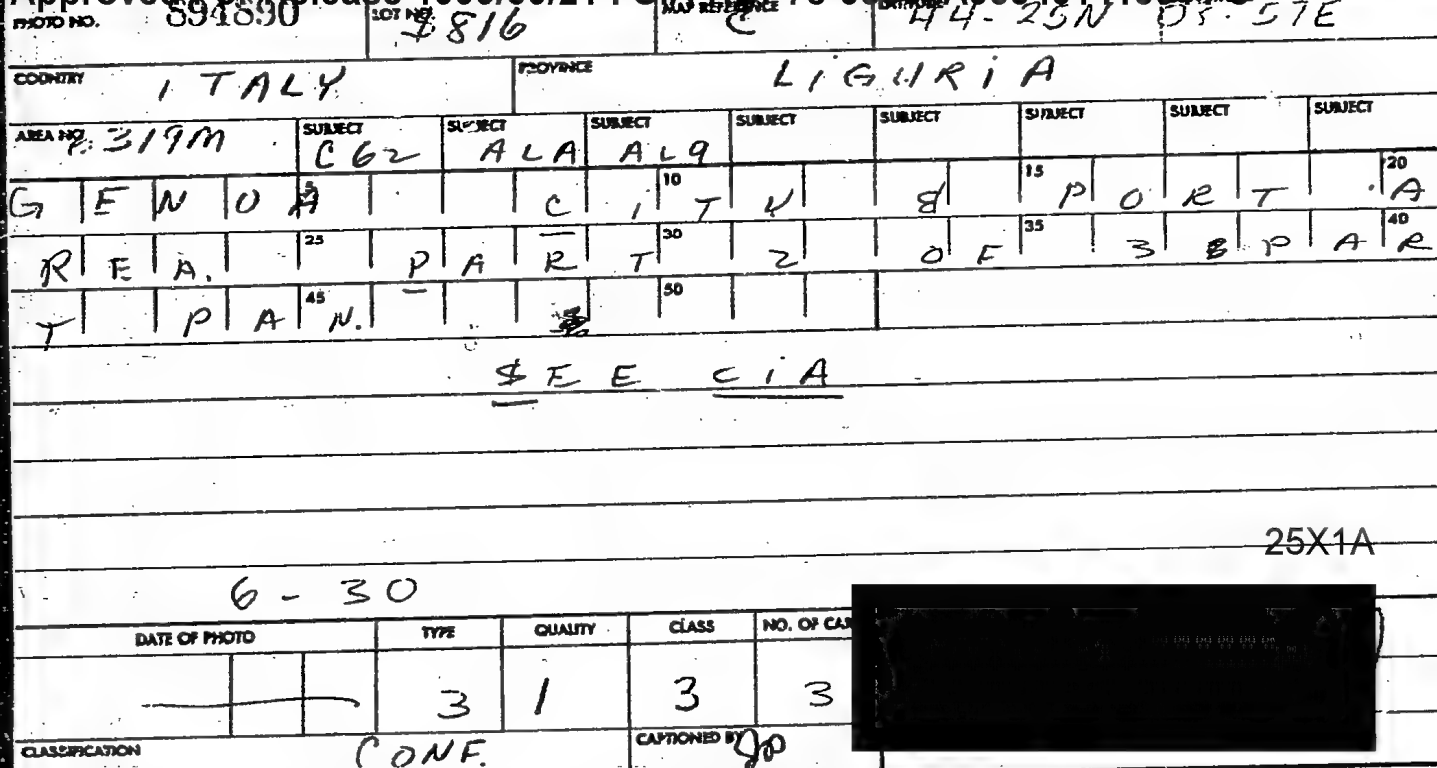 PHOTO NO. 894890 LOT NO. $816 MAP REFERENCE C 44-25N 08-57E
COUNTRY ITALY PROVINCE LIGURIA
AREA NO. 319M SUBJECT C62 SUBJECT ALA SUBJECT AL9 SUBJECT SUBJECT SUBJECT SUBJECT SUBJECT
GENOA 5 CITY 10 & 15 PORT 20 A
REA. 25 PART 30 2 OF 35 3 PAR 40
T PAN. 45 50
SEE CIA
25X1A
6-30
DATE OF PHOTO TYPE QUALITY CLASS NO. OF
3 1 3 3
CLASSIFICATION CONF. CAPTIONED BY JP